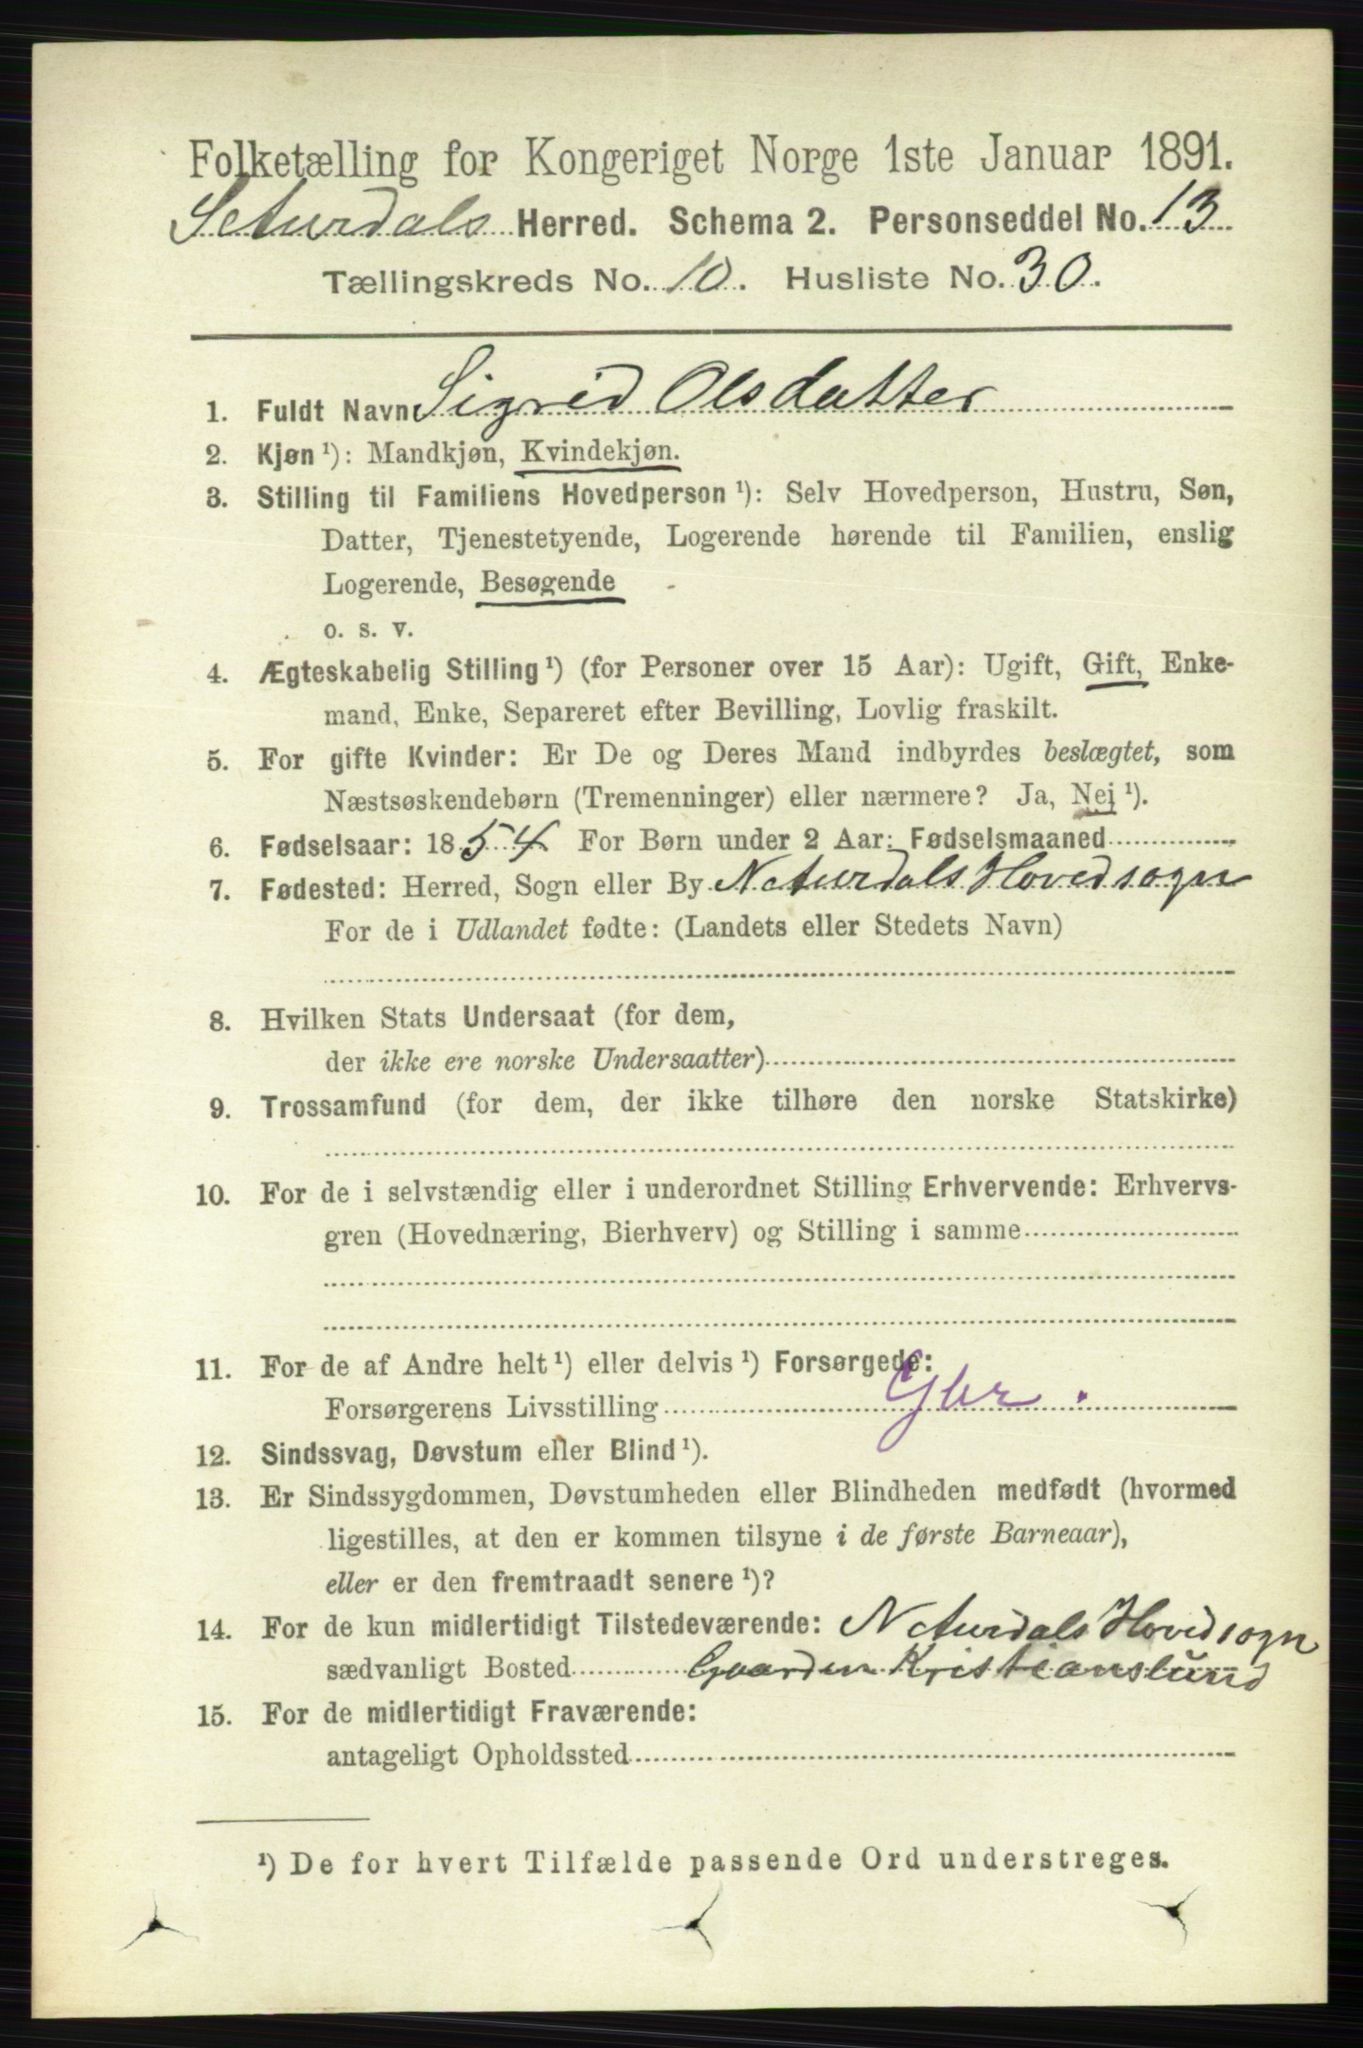 Folketælling for Kongeriget Norge 1ste Januar 1891.
Herred. Schema 2. Personseddel No. 13
Tællingskreds No. 10. Husliste No. 30.
1. Fuldt Navn Sigrid Olsdatter
2. Kjøn ¹): Mandkjøn, Kvindekjøn.
3. Stilling til Familiens Hovedperson ¹): Selv Hovedperson, Hustru, Søn,
Datter, Tjenestetyende, Logerende hørende til Familien, enslig
Logerende, Besøgende
o. s. v.
4. Ægteskabelig Stilling ¹) (for Personer over 15 Aar): Ugift, Gift, Enke-
mand, Enke, Separeret efter Bevilling, Lovlig fraskilt.
5. For gifte Kvinder: Er De og Deres Mand indbyrdes beslægtet, som
Næstsøskendebørn (Tremenninger) eller nærmere? Ja, Nej ¹).
6. Fødselsaar: 1854 For Børn under 2 Aar: Fødselsmaaned
7. Fødested: Herred, Sogn eller By Hovedsogn
For de i Udlandet fødte: (Landets eller Stedets Navn)
8. Hvilken Stats Undersaat (for dem,
der ikke ere norske Undersaatter)
9. Trossamfund (for dem, der ikke tilhøre den norske Statskirke)
10. For de i selvstændig eller i underordnet Stilling Erhvervende: Erhvervs-
gren (Hovednæring, Bierhverv) og Stilling i samme
11. For de af Andre helt ¹) eller delvis ¹) Forsørgede:
Forsørgerens Livsstilling Gbr.
12. Sindssvag, Døvstum eller Blind ¹).
13. Er Sindssygdommen, Døvstumheden eller Blindheden medfødt (hvormed
ligestilles, at den er kommen tilsyne i de første Barneaar),
eller er den fremtraadt senere ¹)?
14. For de kun midlertidigt Tilstedeværende: Hovedsogn
sædvanligt Bosted Gaarden Kristianslund
15. For de midlertidigt Fraværende:
antageligt Opholdssted
¹) De for hvert Tilfælde passende Ord understreges.